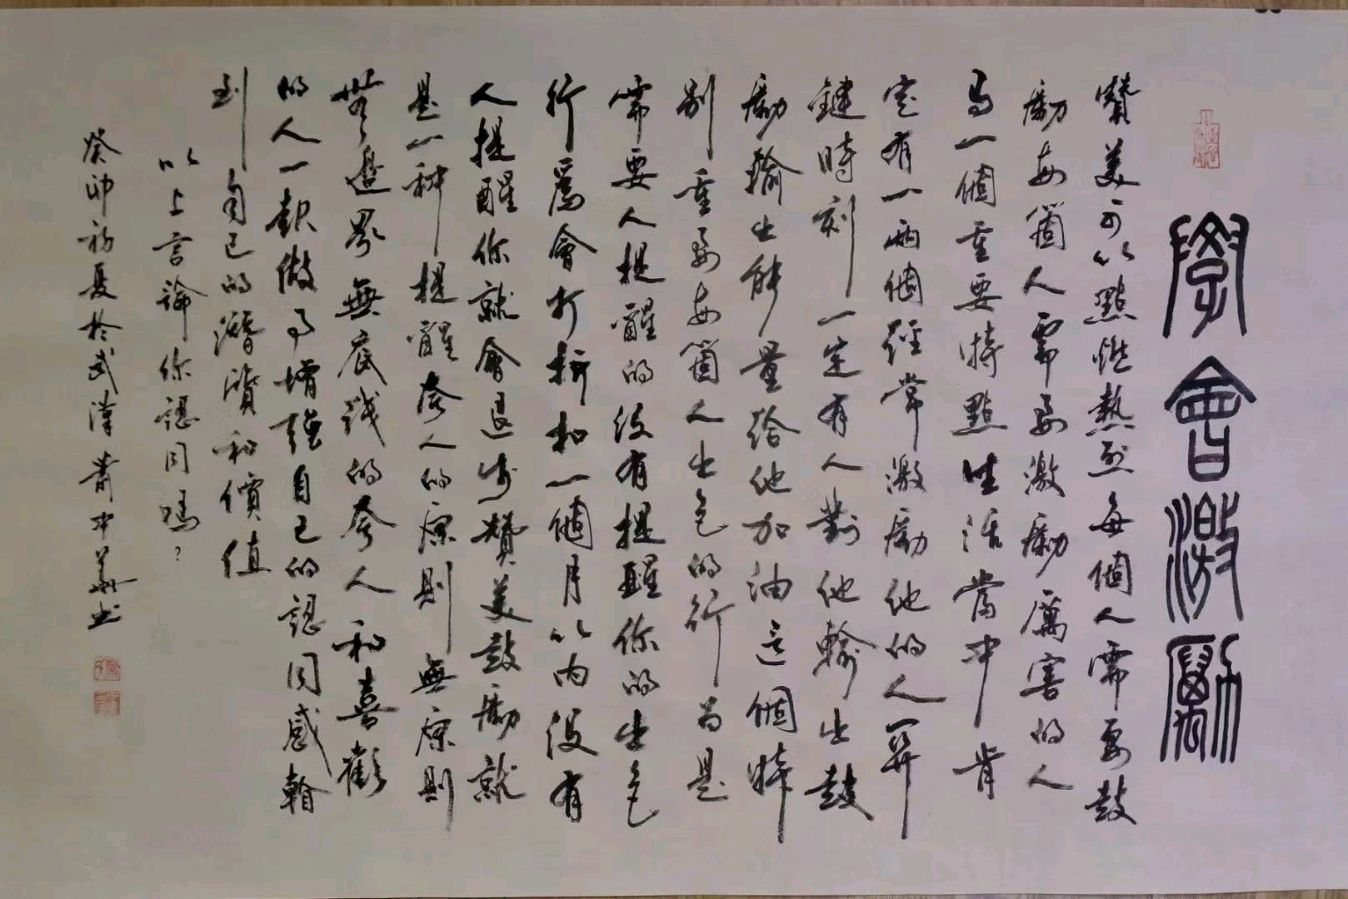 學會激勵
贊美可以點燃熱烈每個人需要鼓
勵每箇人需要激勵厲害的人
与一個重要特點生活當中肯
定有一兩個經常激勵他的人關
鍵時刻一定有人對他輸出鼓
勵輸出能量給他加油這個特
別重要每箇人出色的行為是
需要人提醒的沒有提醒你的出色
行爲會打折扣一個月以内沒有
人提醒你就會退步贊美鼓勵就
是一种提醒夸人的原則無原則
無邊界無底线的夸人和喜歡
的人一起做事增强自己的認同感翰
到自己的潛質和價值
以上言論你認同嗎?
癸卯初夏於武漢書中葉书